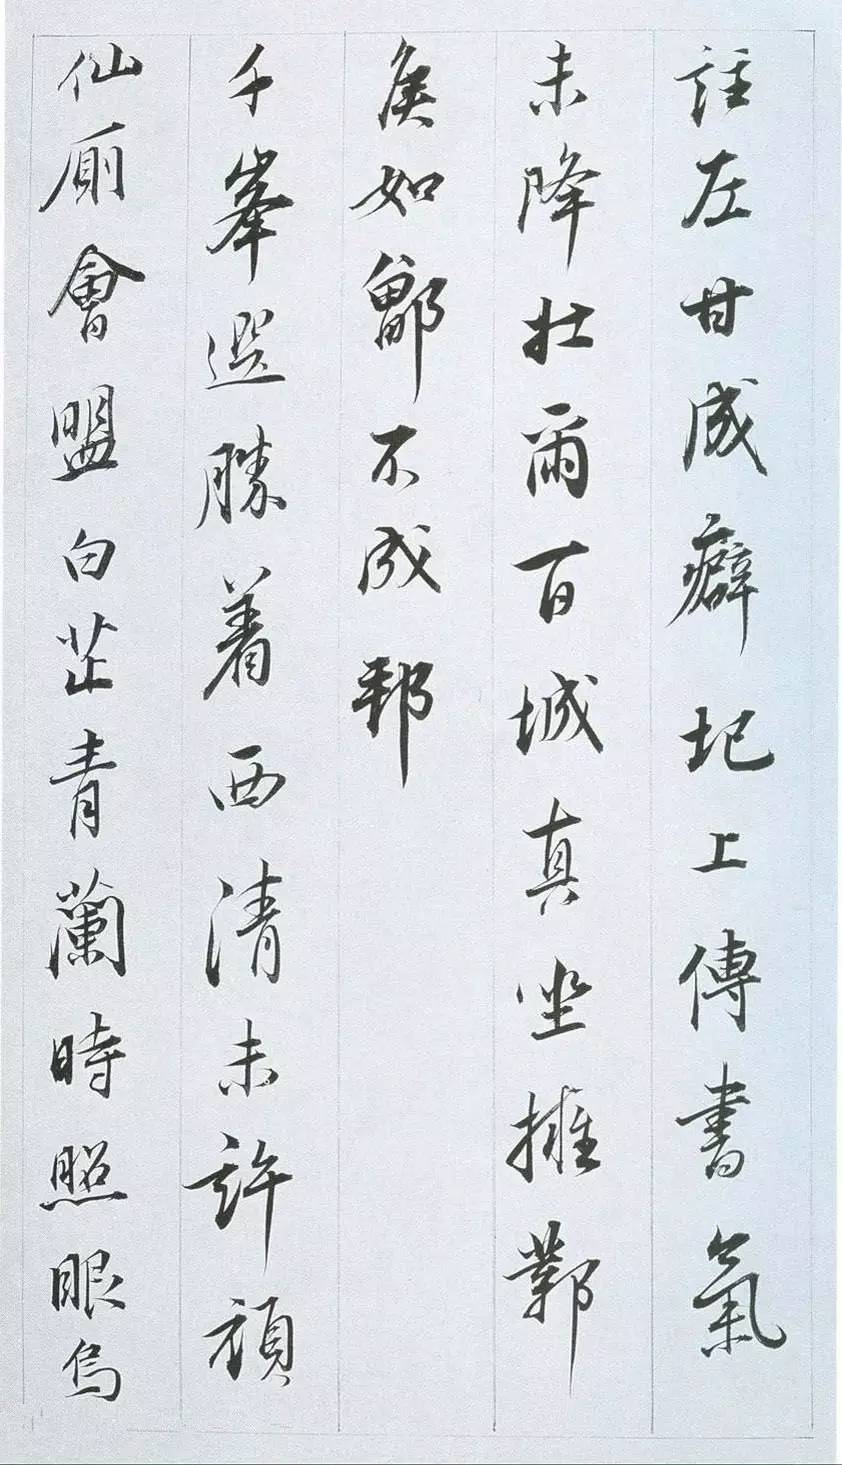 註左甘成癖圯上傳書氣
未降壯爾百城真坐擁鄴
侯如鄶不成邦
千峯選勝着西清未許頑
仙厠會盟白芷青蘭時照眼烏